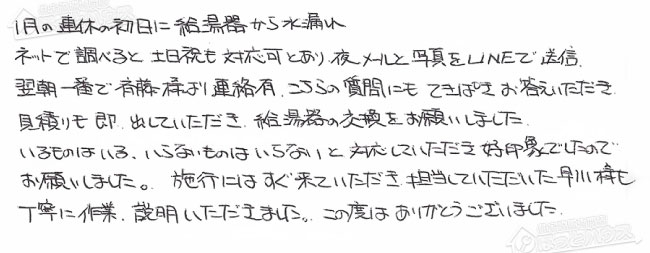 1月の連休の初日に給湯器から水漏れ
ネットで調べると土日祝も対応可とあり、夜メールと写真をLINEで送信。
翌朝一番で斉藤様より連絡有、こちらの質問にもてきぱきお答えいただき
見積りも即、出していただき、給湯器の交換をお願いしました。
いるものはいる、いらないものはいらないと対応していただき好印象でしたので
お願いしました。施行にはすぐ来ていただき、担当していただいた早川様も
丁寧に作業、説明いただきました。この度はありがとうございました。